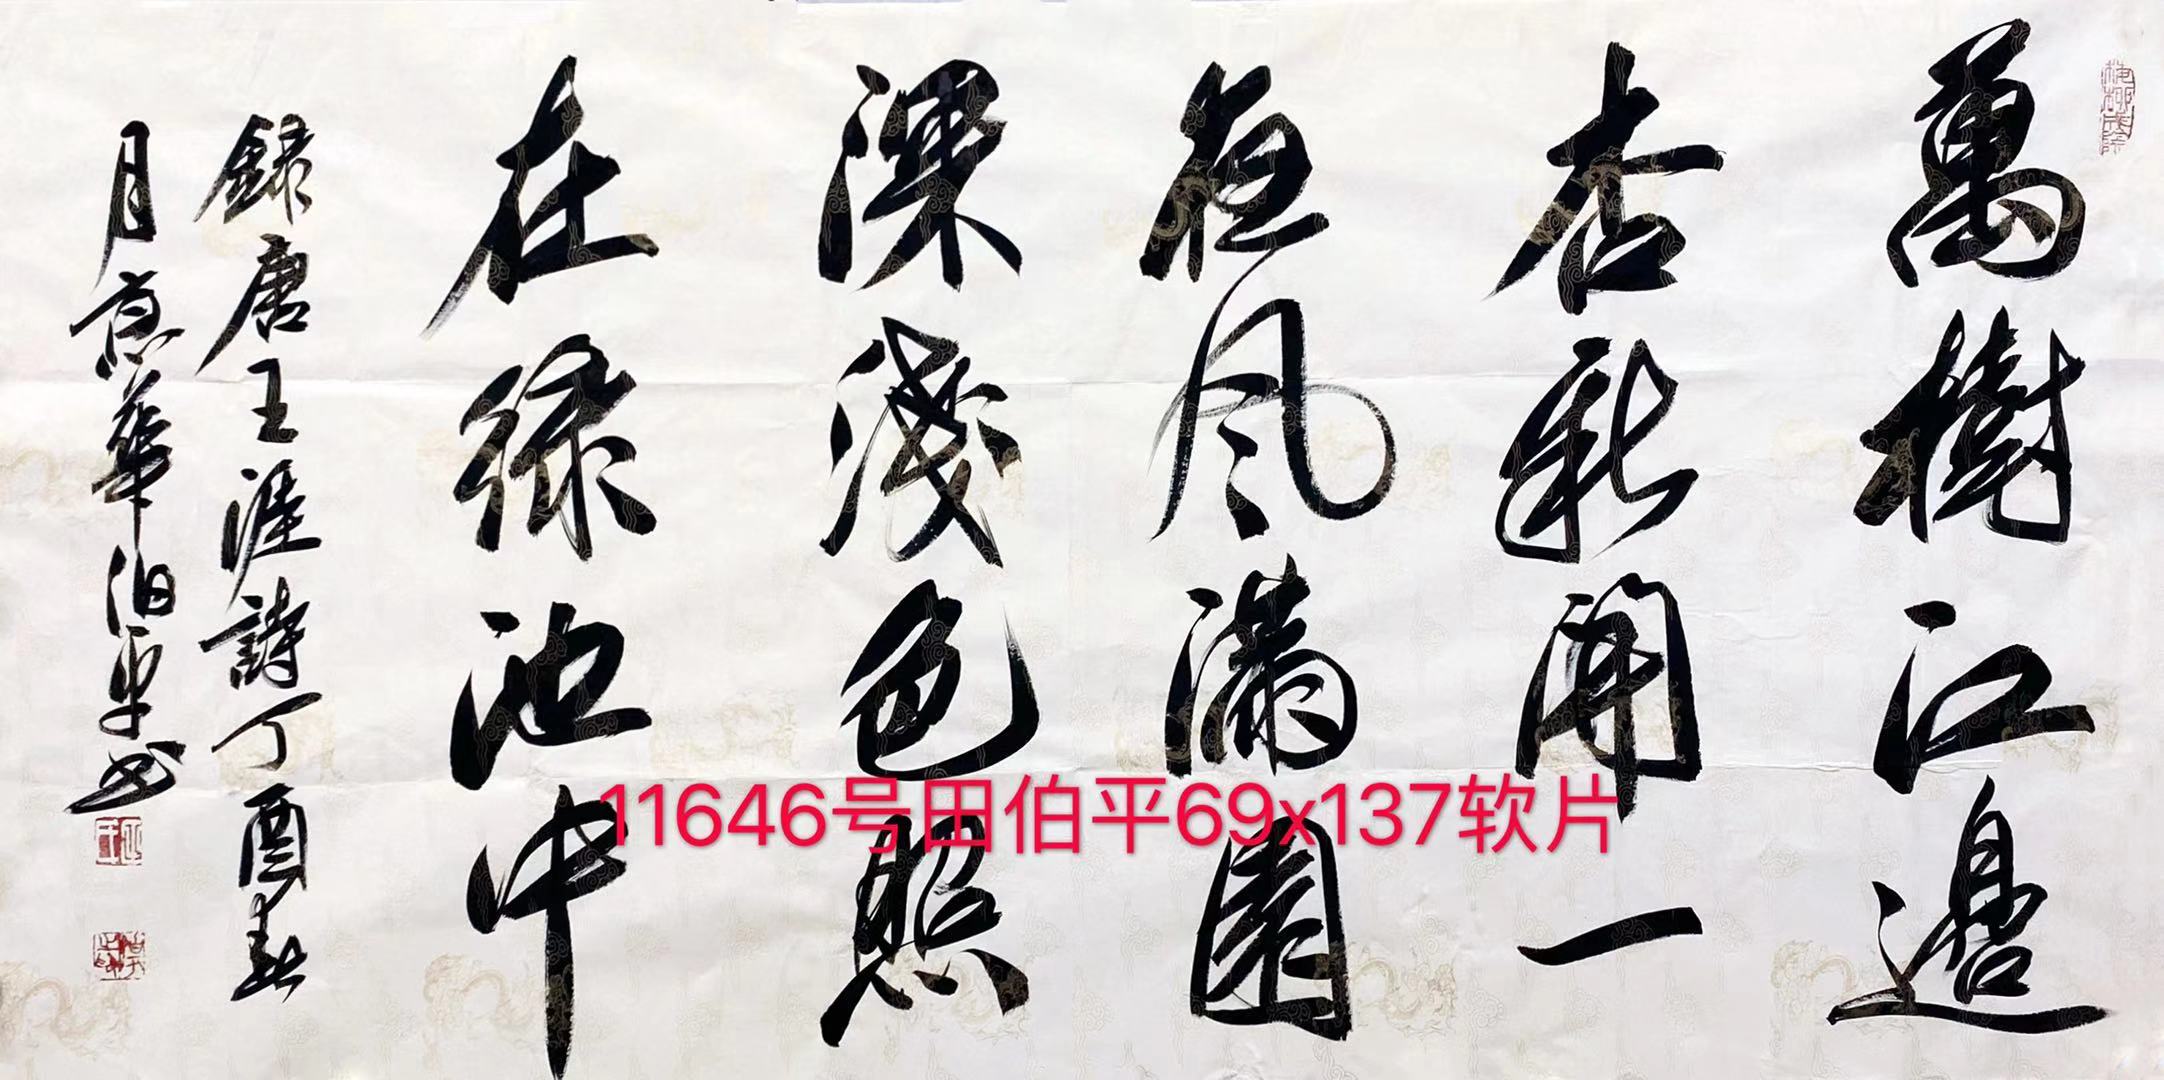 萬樹江邊
杏新開一
夜風滿園
深淺色照
在綠池中
錄唐王涯詩丁酉春
月京華伯平书
11646号田伯平69x137软片